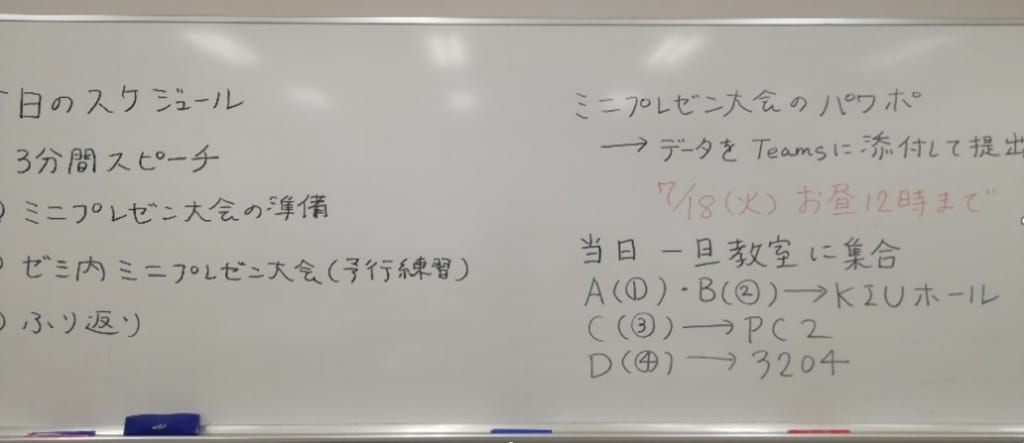 日のスケジュール
3分間スピーチ
ミニプレゼン大会の準備
ゼミ内ミニプレゼン大会(予行練習)
ふり返り
ミニプレゼン大会のパワポ
→データをTeamsに添付して提出
7/18(火)お昼12時まで
当日 一旦教室に集合
A(①)・B(②)→KIUホール
C(③)→PC2
D(④)→3204